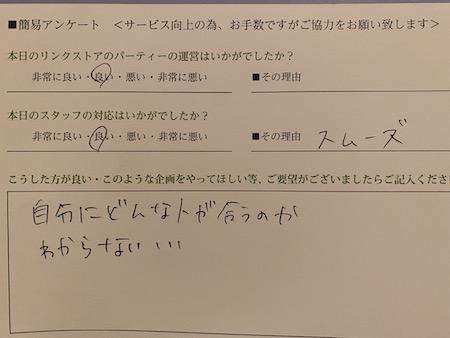 ■簡易アンケート ＜サービス向上の為、お手数ですがご協力をお願い致します＞
本日のリンクストアのパーティーの運営はいかがでしたか？
非常に良い・良い・悪い・非常に悪い ■その理由
本日のスタッフの対応はいかがでしたか？
非常に良い・良い・悪い・非常に悪い ■その理由 スムーズ
こうした方が良い・このような企画をやってほしい等、ご要望がございましたらご記入くださ
自分にどんな人が合うのか
わからない...